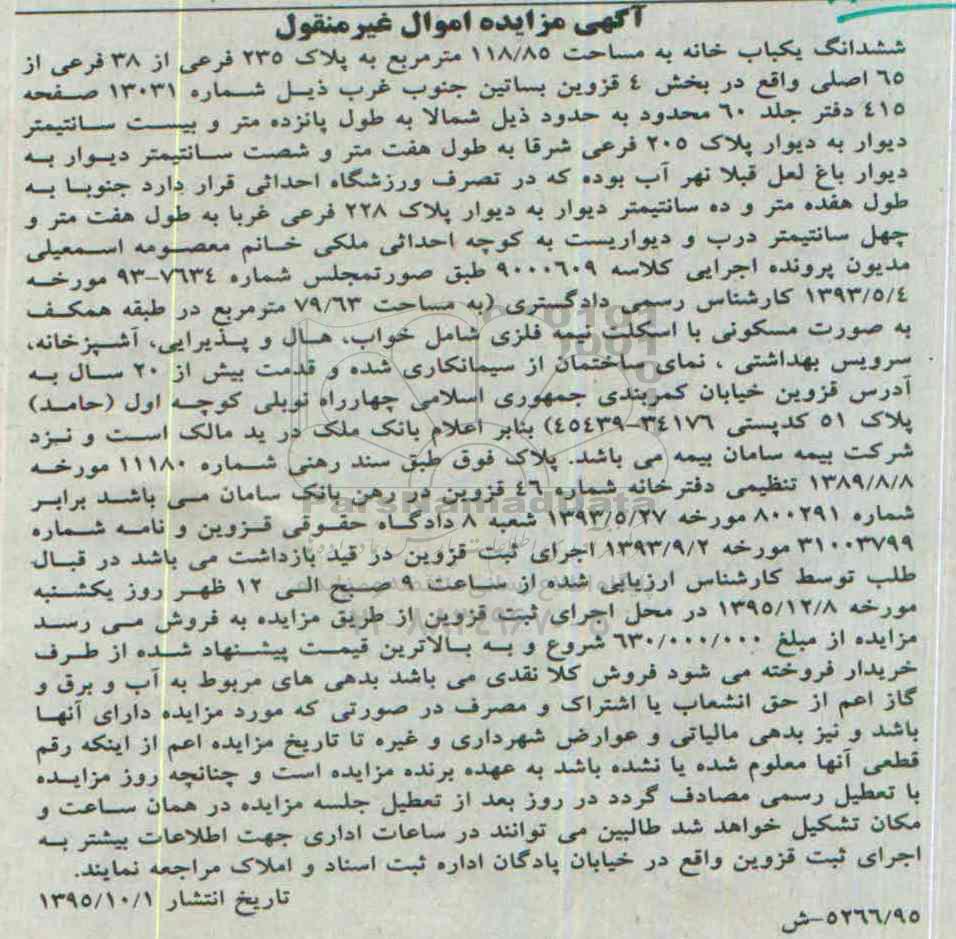 آگهی مزایده اموال غیرمنقول
ششدانگ یکباب خانه به مساحت ۱۱۸/۸۵ مترمربع به پلاک ۲۳۵ فرعی از ۳۸ فرعی از
۶۵ اصلی واقع در بخش ۴ قزوین بساتین جنوب غرب ذیل شماره ۱۳۰۳۱ صفحه
۴۱۵ دفتر جلد ۶۰ محدود به حدود ذیل شمالا به طول پانزده متر و بیست سانتیمتر
دیوار به دیوار پلاک ۲۰۵ فرعی شرقا به طول هفت متر و شصت سانتیمتر دیوار به
دیوار باغ لعل قبلا نهر آب بوده که در تصرف ورزشگاه احداثی قرار دارد جنوبا به
طول هفده متر و ده سانتیمتر دیوار به دیوار پلاک ۲۲۸ فرعی غربا به طول هفت متر و
چهل سانتیمتر درب و دیواریست به کوچه احداثی ملکی خانم معصومه اسمعیلی
مدیون پرونده اجرایی کلاسه ۹۰۰۰۶۰۹ طبق صورتمجلس شماره ۷۶۳۴-۹۳ مورخه
۱۳۹۳/۵/۴ کارشناس رسمی دادگستری (به مساحت ۷۹/۶۳ مترمربع در طبقه همکف
به صورت مسکونی با اسکلت نیمه فلزی شامل خواب، هال و پذیرایی، آشپزخانه،
سرویس بهداشتی ، نمای ساختمان از سیمانکاری شده و قدمت بیش از ۲۰ سال به
آدرس قزوین خیابان کمربندی جمهوری اسلامی چهارراه نویلی کوچه اول (حامد)
پلاک ۵۱ کدپستی ۳۴۱۷۶-۴۵۴۳۹) بنابر اعلام بانک ملک در ید مالک است و نزد
شرکت بیمه سامان بیمه می باشد. پلاک فوق طبق سند رهنی شماره ۱۱۱۸۰ مورخه
۱۳۸۹/۸/۸ تنظیمی دفترخانه شماره ۴۶ قزوین در رهن بانک سامان می باشد برابر
شماره ۸۰۰۲۹۱ مورخه ۱۳۹۳/۵/۲۷ شعبه ۸ دادگاه حقوقی قزوین و نامه شماره
۳۱۰۰۳۷۹۹ مورخه ۱۳۹۳/۹/۲ اجرای ثبت قزوین در قید بازداشت می باشد در قبال
طلب توسط کارشناس ارزیابی شده از ساعت ۹ صبح الی ۱۲ ظهر روز یکشنبه
مورخه ۱۳۹۵/۱۲/۸ در محل اجرای ثبت قزوین از طریق مزایده به فروش می رسد
مزایده از مبلغ ۶۳۰/۰۰۰/۰۰۰ شروع و به بالاترین قیمت پیشنهاد شده از طرف
خریدار فروخته می شود فروش کلا نقدی می باشد بدهی های مربوط به آب و برق و
گاز اعم از حق انشعاب یا اشتراک و مصرف در صورتی که مورد مزایده دارای آنها
باشد و نیز بدهی مالیاتی و عوارض شهرداری و غیره تا تاریخ مزایده اعم از اینکه رقم
قطعی آنها معلوم شده یا نشده باشد به عهده برنده مزایده است و چنانچه روز مزایده
با تعطیل رسمی مصادف گردد در روز بعد از تعطیل جلسه مزایده در همان ساعت و
مکان تشکیل خواهد شد طالبین می توانند در ساعات اداری جهت اطلاعات بیشتر به
اجرای ثبت قزوین واقع در خیابان پادگان اداره ثبت اسناد و املاک مراجعه نمایند.
تاریخ انتشار ۱۳۹۵/۱۰/۱
۵۲۶۶/۹۵-ش
ParsNamadData